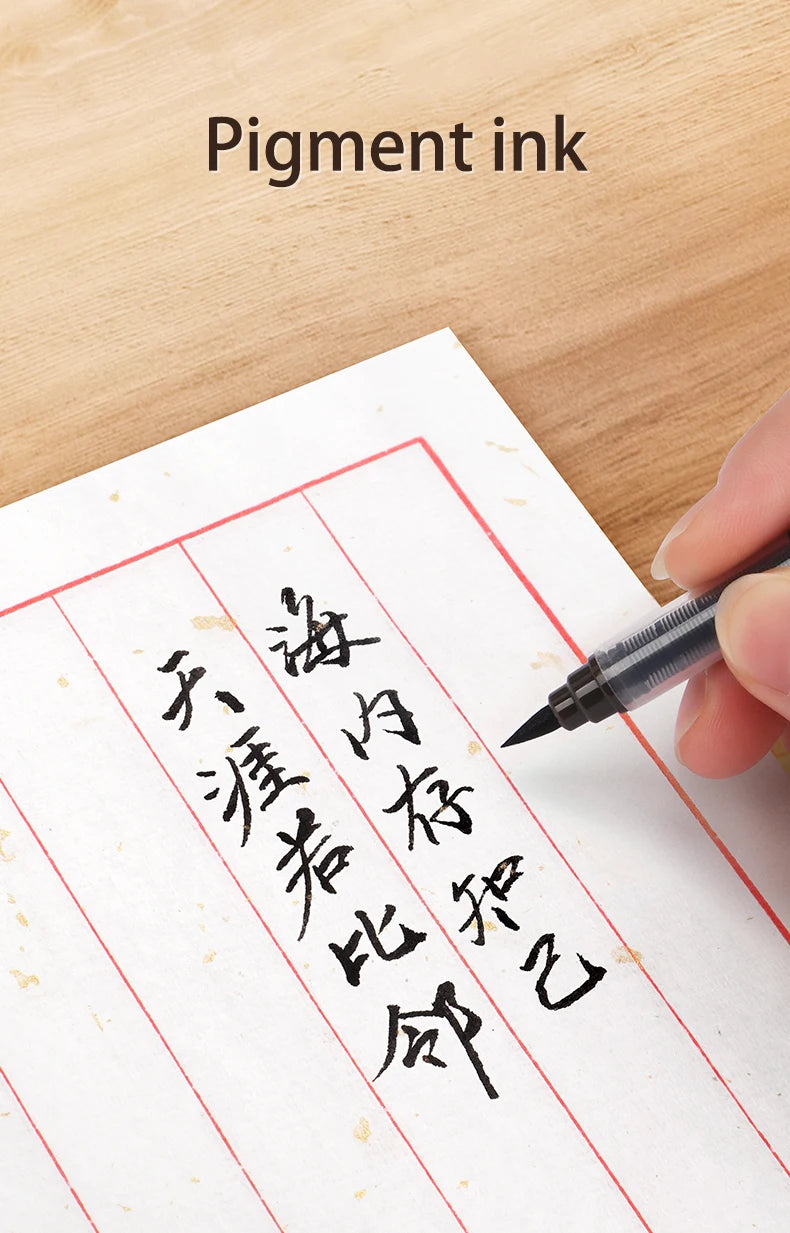 Pigment ink
海内存知己
天涯若比邻